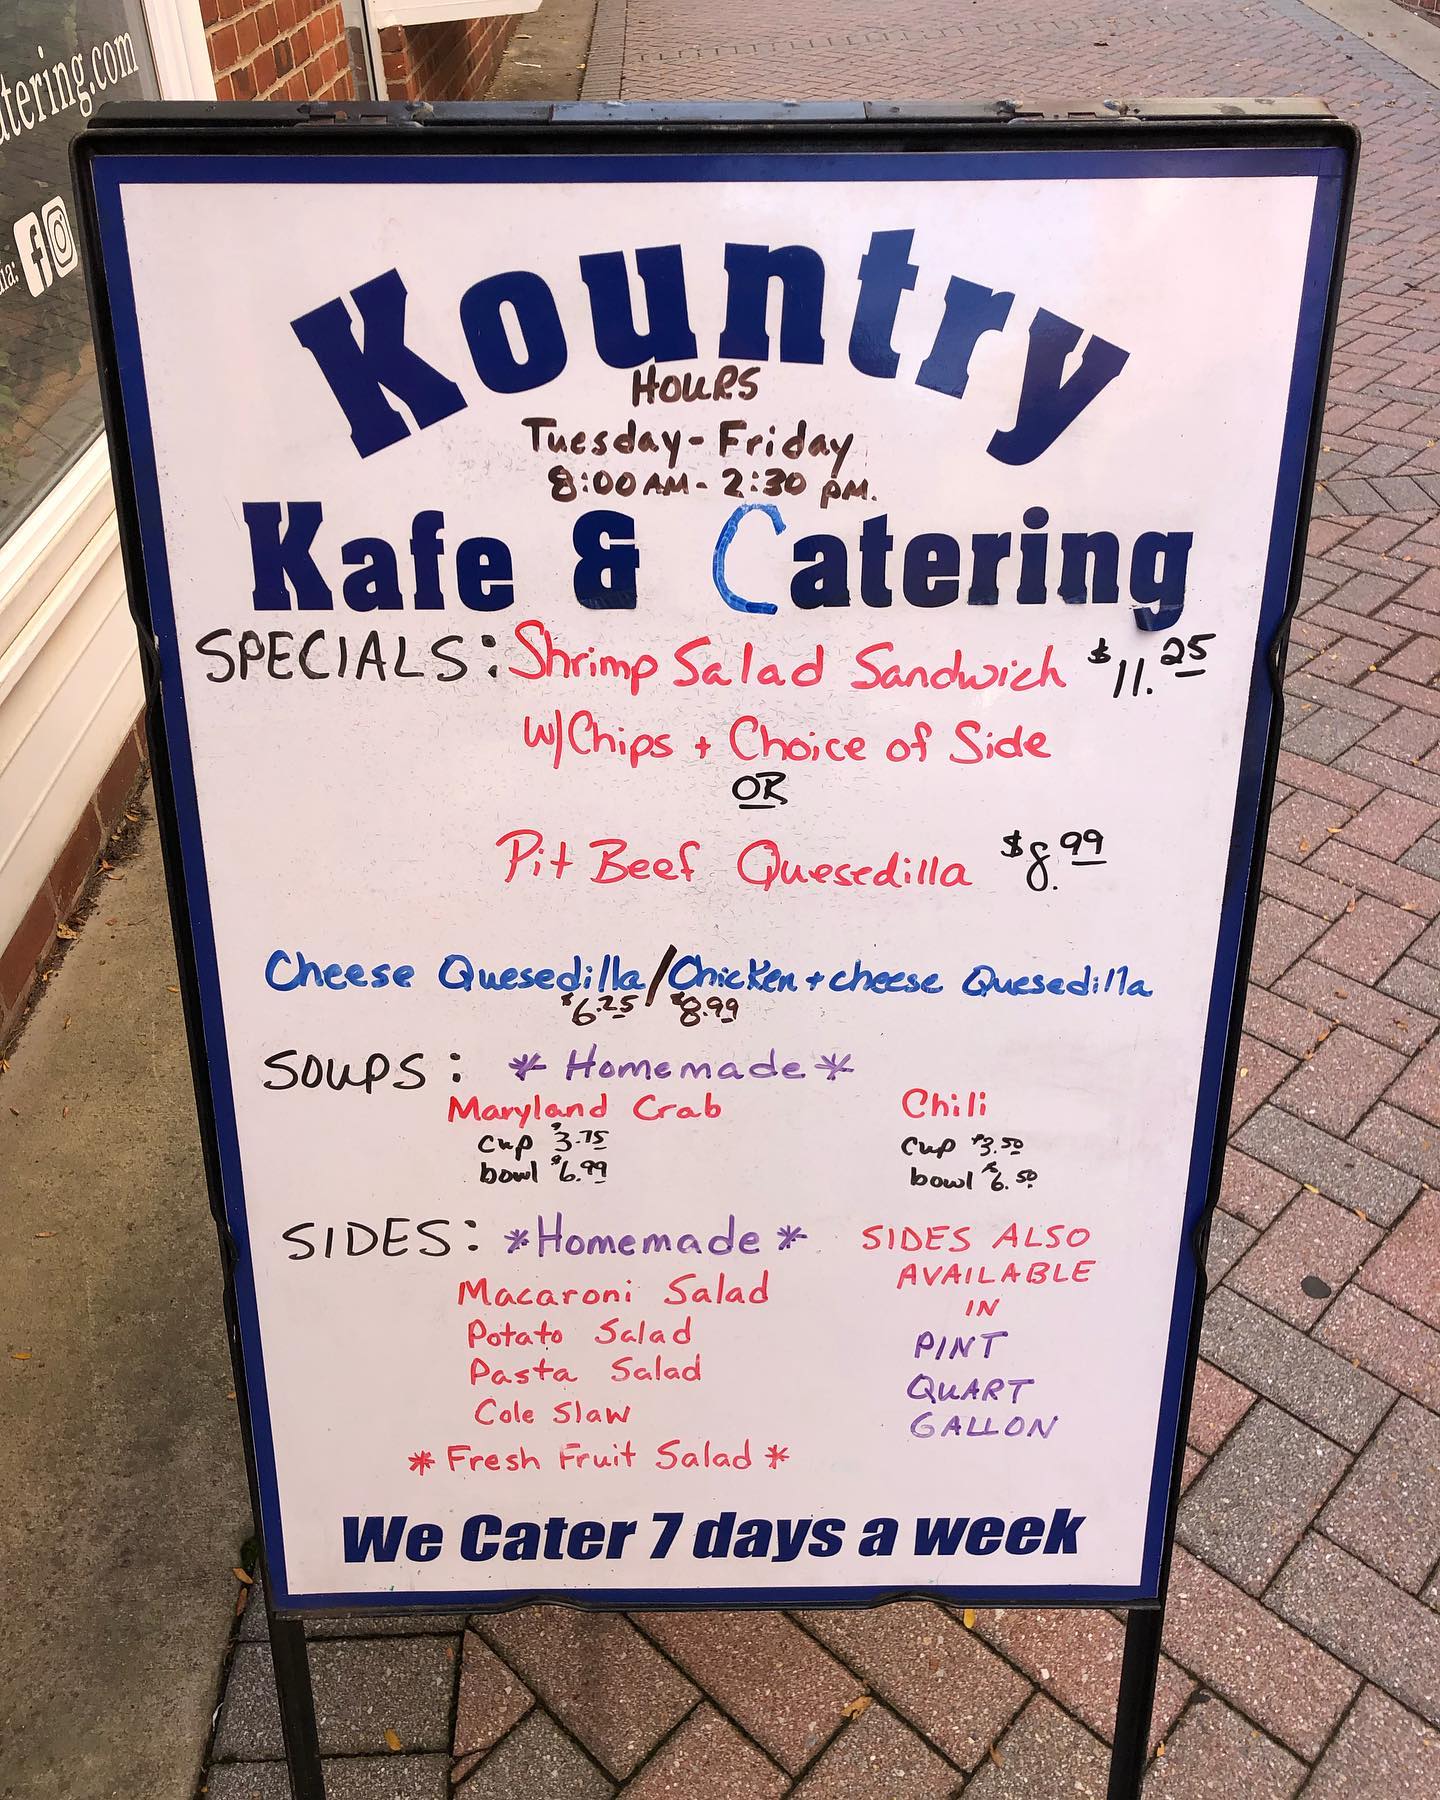 atering.com
ia:
Kountry
HOURS
Tuesday-Friday
8:00 AM - 2:30 PM.
Kafe & Catering
SPECIALS: Shrimp Salad Sandwich $11.25
w/Chips + Choice of Side
OR
Pit Beef Quesedilla $8.99
Cheese Quesedilla/Chicken + cheese Quesedilla
$6.25 / $8.99
SOUPS: *Homemade*
Maryland Crab Chili
cup $3.75 cup $3.50
bowl $6.99 bowl $6.50
SIDES: *Homemade* SIDES ALSO
AVAILABLE
Macaroni Salad IN
Potato Salad PINT
Pasta Salad QUART
Cole Slaw GALLON
*Fresh Fruit Salad*
We Cater 7 days a week